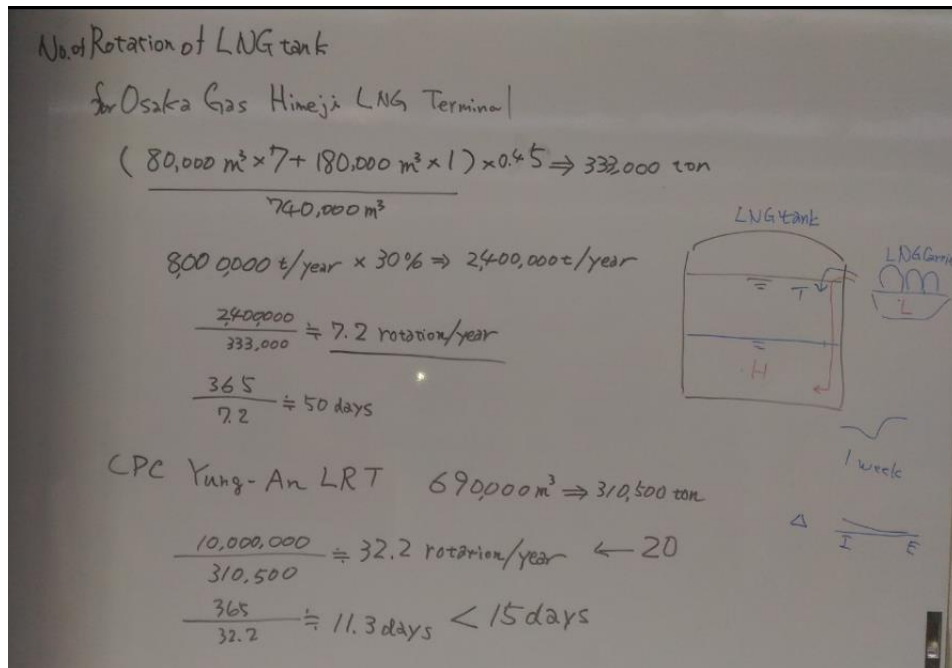 No. of Rotation of LNG tank
for Osaka Gas Himeji LNG Terminal
(80,000 m³ × 7 + 180,000 m³ × 1) × 0.45 ⇒ 333,000 ton
740,000 m³
8,000,000 t/year × 30% ⇒ 2,400,000 t/year
2,400,000
333,000
≒ 7.2 rotation/year
365
7.2
≒ 50 days
LNG tank
T
H
L
1 week
Δ
I E
CPC Yung-An LRT 690,000 m³ ⇒ 310,500 ton
10,000,000
310,500
≒ 32.2 rotation/year ← 20
365
32.2
≒ 11.3 days < 15 days